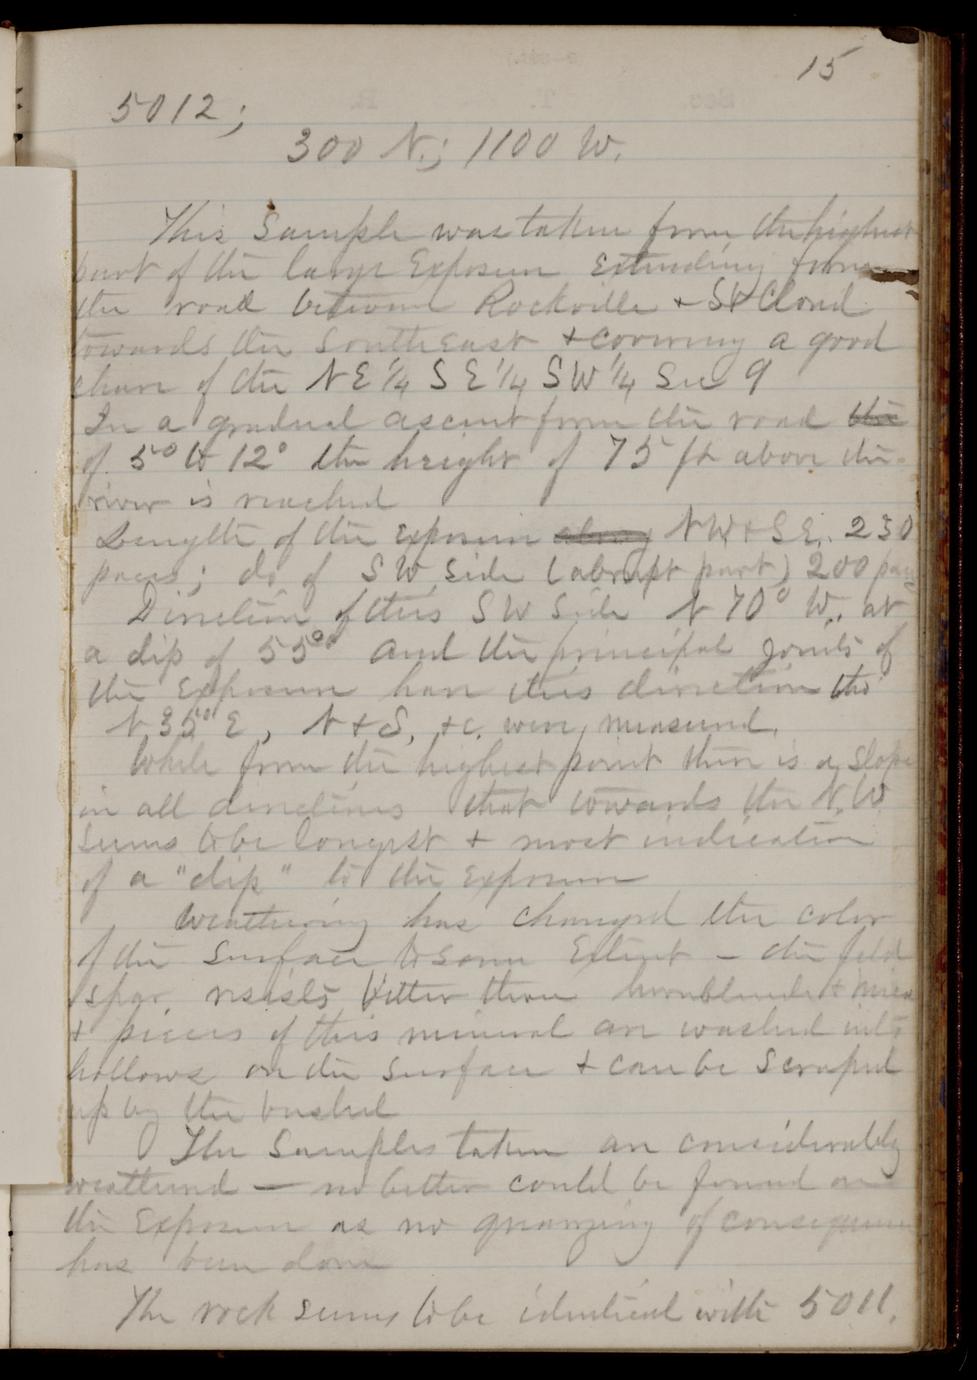 15
5012;
300 N.; 1100 W.
This Sample was taken from the highest
part of the large Exposure Extending from
the road between Rockville + St Cloud
towards the South East + covering a good
share of the NE 1/4 SE 1/4 SW 1/4 Sec 9
In a gradual ascent from the road the
of 5° to 12° the height of 75 ft above the
river is reached
Length of the exposure along NW + SE. 230
paces; do of SW side (abrupt part) 200 paces
Direction of this SW Side N 70° W. at
a dip of 55° and the principal joints of
the Exposure have this direction tho'
N 35° E, N + S, +c. were measured.
While from the highest point there is a slope
in all directions that towards the N.W
seems to be longest + most indication
of a "dip" to the Exposure
Weathering has changed the color
of the surface to some Extent - the feld
spar resists better than hornblende + mica
+ pieces of this mineral are washed into
hollows on the surface + can be scraped
up by the bushel
The Samples taken are considerably
weathered — no better could be found on
the Exposure as no quarrying of consequence
has been done
The rock seems to be identical with 5011.